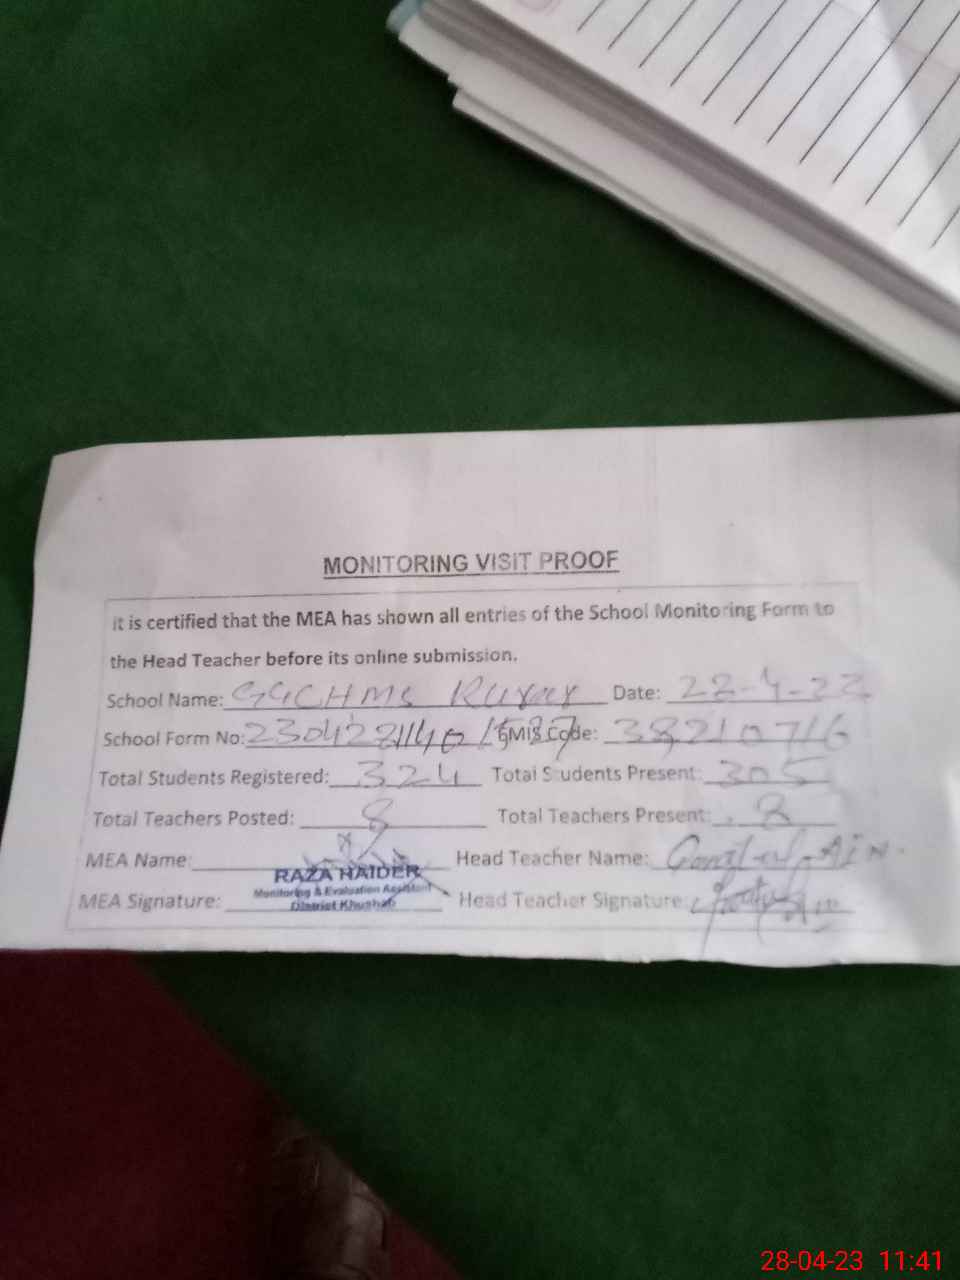 MONITORING VISIT PROOF
it is certified that the MEA has shown all entries of the School Monitoring Form to
the Head Teacher before its online submission.
School Name: GGCHMS Date:
School Form No: EMIS Code: 38210716
Total Students Registered: 324 Total Students Present: 305
Total Teachers Posted: 8 Total Teachers Present: 8
MEA Name: Head Teacher Name:
RAZA HAIDER
Monitoring & Evaluation Assistant
MEA Signature: Head Teacher Signature:
District Khushab
28-04-23 11:41